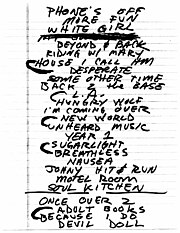 PHONE'S OFF
MORE FUN
WHITE GIRL
BEYOND & BACK
RIDING W/ MARY
HOUSE I CALL HIM
DESPERATE
SOME OTHER TIME
BACK 2 THE BASE
L.A.
HUNGRY WOLF
I'M COMING OVER
NEW WORLD
UNHEARD MUSIC
YEAR 1
SUGARLIGHT
BREATHLESS
NAUSEA
JONNY HIT & RUN
MOTEL ROOM
SOUL KITCHEN
ONCE OVER 2
ADULT BOOKS
BECAUSE I DO
DEVIL DOLL